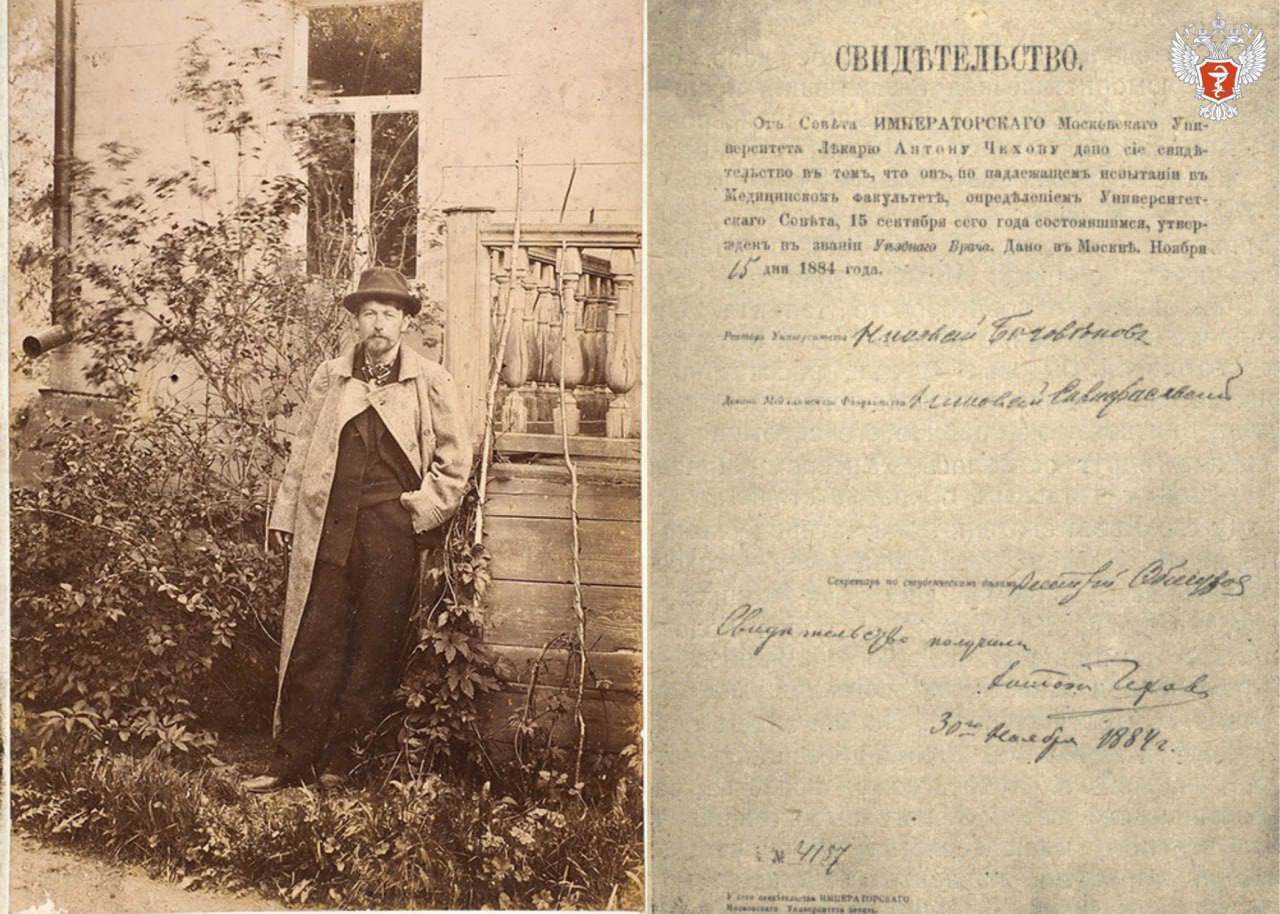 СВИДѢТЕЛЬСТВО.
Отъ Совѣта ИМПЕРАТОРСКАГО Московскаго Уни-
верситета Лѣкарю Антону Чехову дано сіе свидѣ-
тельство въ томъ, что онъ, по надлежащемъ испытаніи въ
Медицинскомъ факультетѣ, опредѣленіемъ Университет-
скаго Совѣта, 15 сентября сего года состоявшимся, утвер-
жденъ въ званіи Уѣзднаго Врача. Дано въ Москвѣ. Ноября
15 дня 1884 года.
Ректоръ Университета Николай Боголѣповъ
Деканъ Медицинскаго Факультета
Секретарь по студенческимъ дѣламъ
Свидѣтельство получилъ
Антонъ Чеховъ
30го Ноября 1884 г.
№ 4157
У сего свидѣтельства ИМПЕРАТОРСКАГО
Московскаго Университета печать.